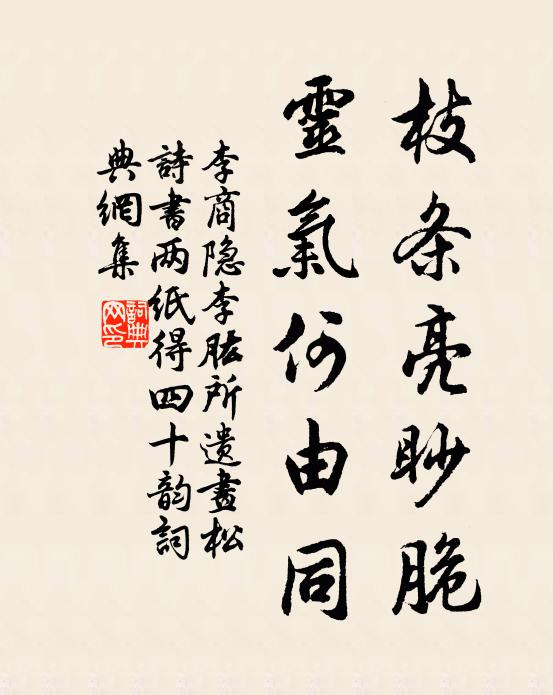 枝条亮眇脆
靈氣何由同
李商隐李肱所遗畫松
詩書两纸得四十韵詞
典網集
詞典
网印